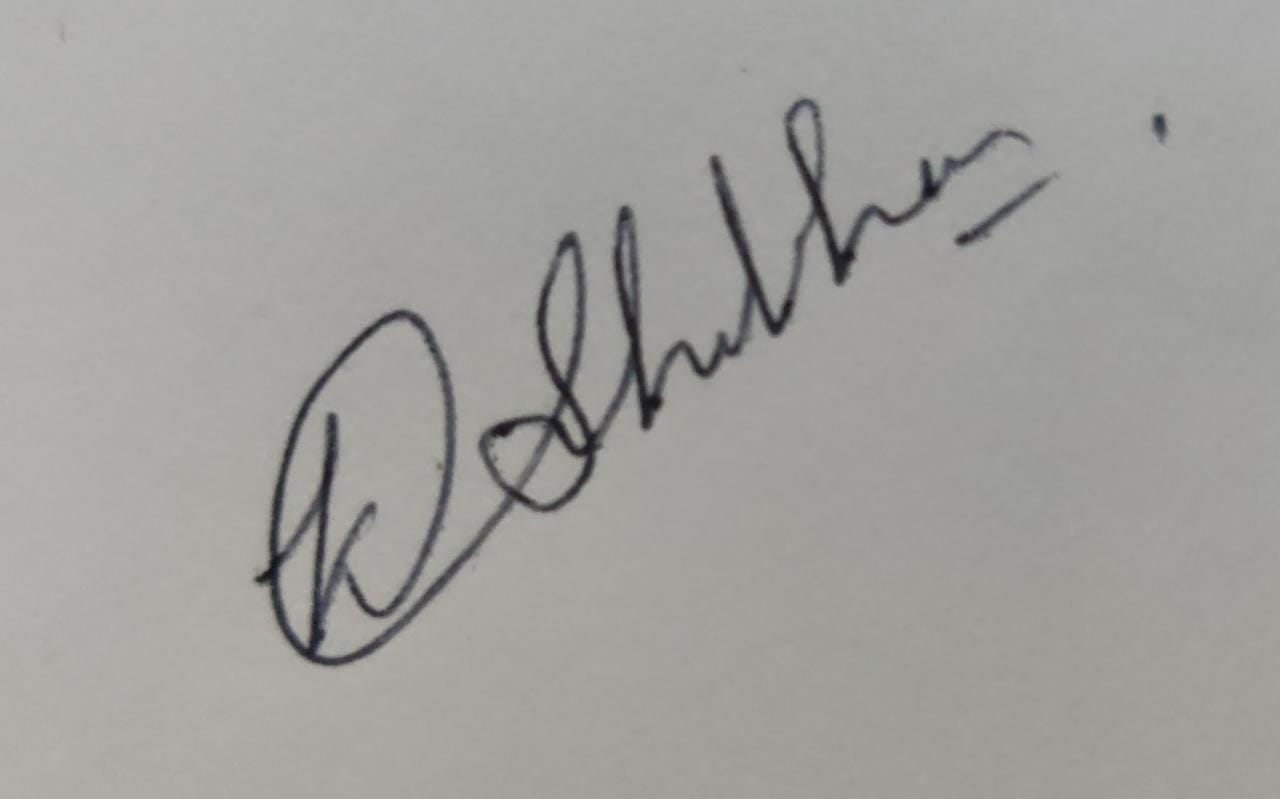 K Shubham.